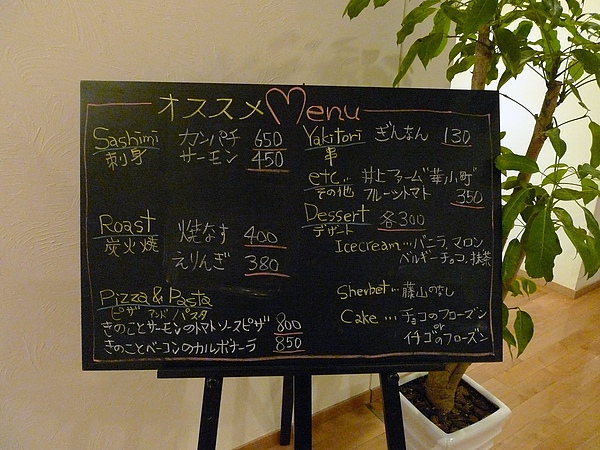 オススメ Menu
Sashimi
刺身
カンパチ 650
サーモン 450
Roast
炭火焼
焼なす 400
えりんぎ 380
Pizza & Pasta
ピザ アンド パスタ
きのことサーモンのトマトソースピザ 800
きのことベーコンのカルボナーラ 850
Yakitori
串
ぎんなん 130
etc...
その他
井上ファーム"華小町"
フルーツトマト 350
Dessert 各300
デザート
Icecream…バニラ、マロン
ベルギーチョコ、抹茶
Sherbet…藤山のなし
Cake…チョコのフローズン
or
イチゴのフローズン